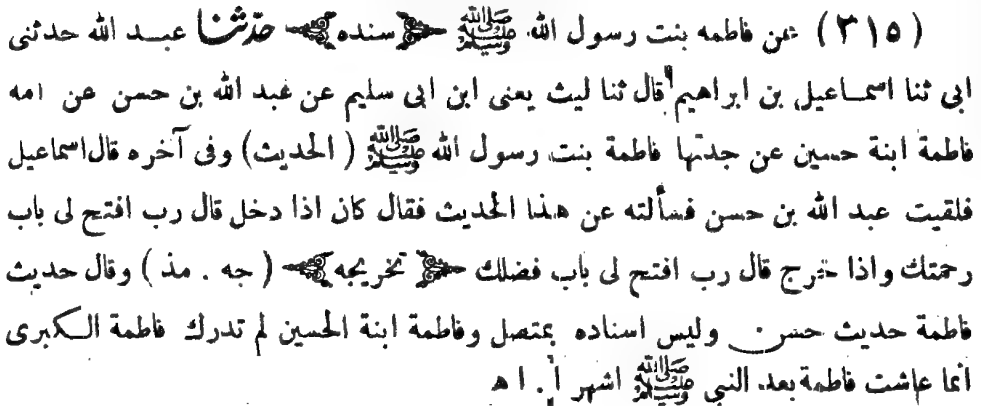 (٣١٥) عن فاطمه بنت رسول الله ﷺ سنده حدثنا عبد الله حدثنى
ابى ثنا اسماعيل بن ابراهيم قال ثنا ليث يعنى ابن ابى سليم عن عبد الله بن حسن عن امه
فاطمة ابنة حسين عن جدتها فاطمة بنت رسول الله ﷺ (الحديث) وفى آخره قال اسماعيل
فلقيت عبد الله بن حسن فسألته عن هذا الحديث فقال كان اذا دخل قال رب افتح لى باب
رحمتك واذا خرج قال رب افتح لى باب فضلك تخريجه (جه . مذ) وقال حديث
فاطمة حديث حسن وليس اسناده بمتصل وفاطمة ابنة الحسين لم تدرك فاطمة الكبرى
أنما عاشت فاطمة بعد النبى ﷺ اشهر أ . ا ه